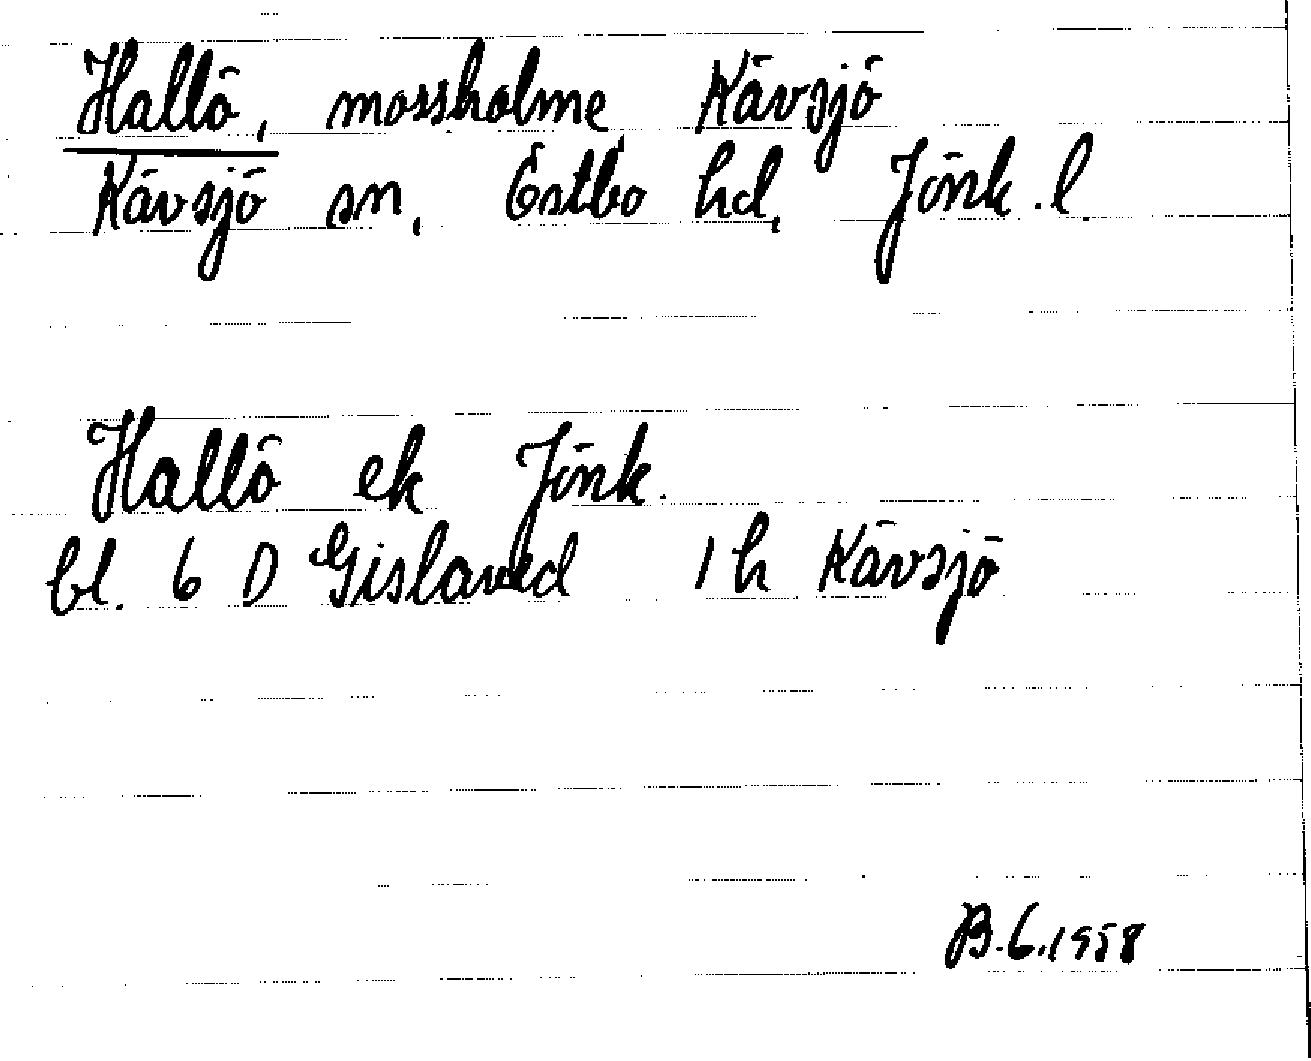 Hallö, mossholme Kävsjö
Kävsjö sn, Östbo hd, Jönk.l.
Hallö ek Jönk.
bl. 6 D Gislaved 1h Kävsjö
B.G.1958